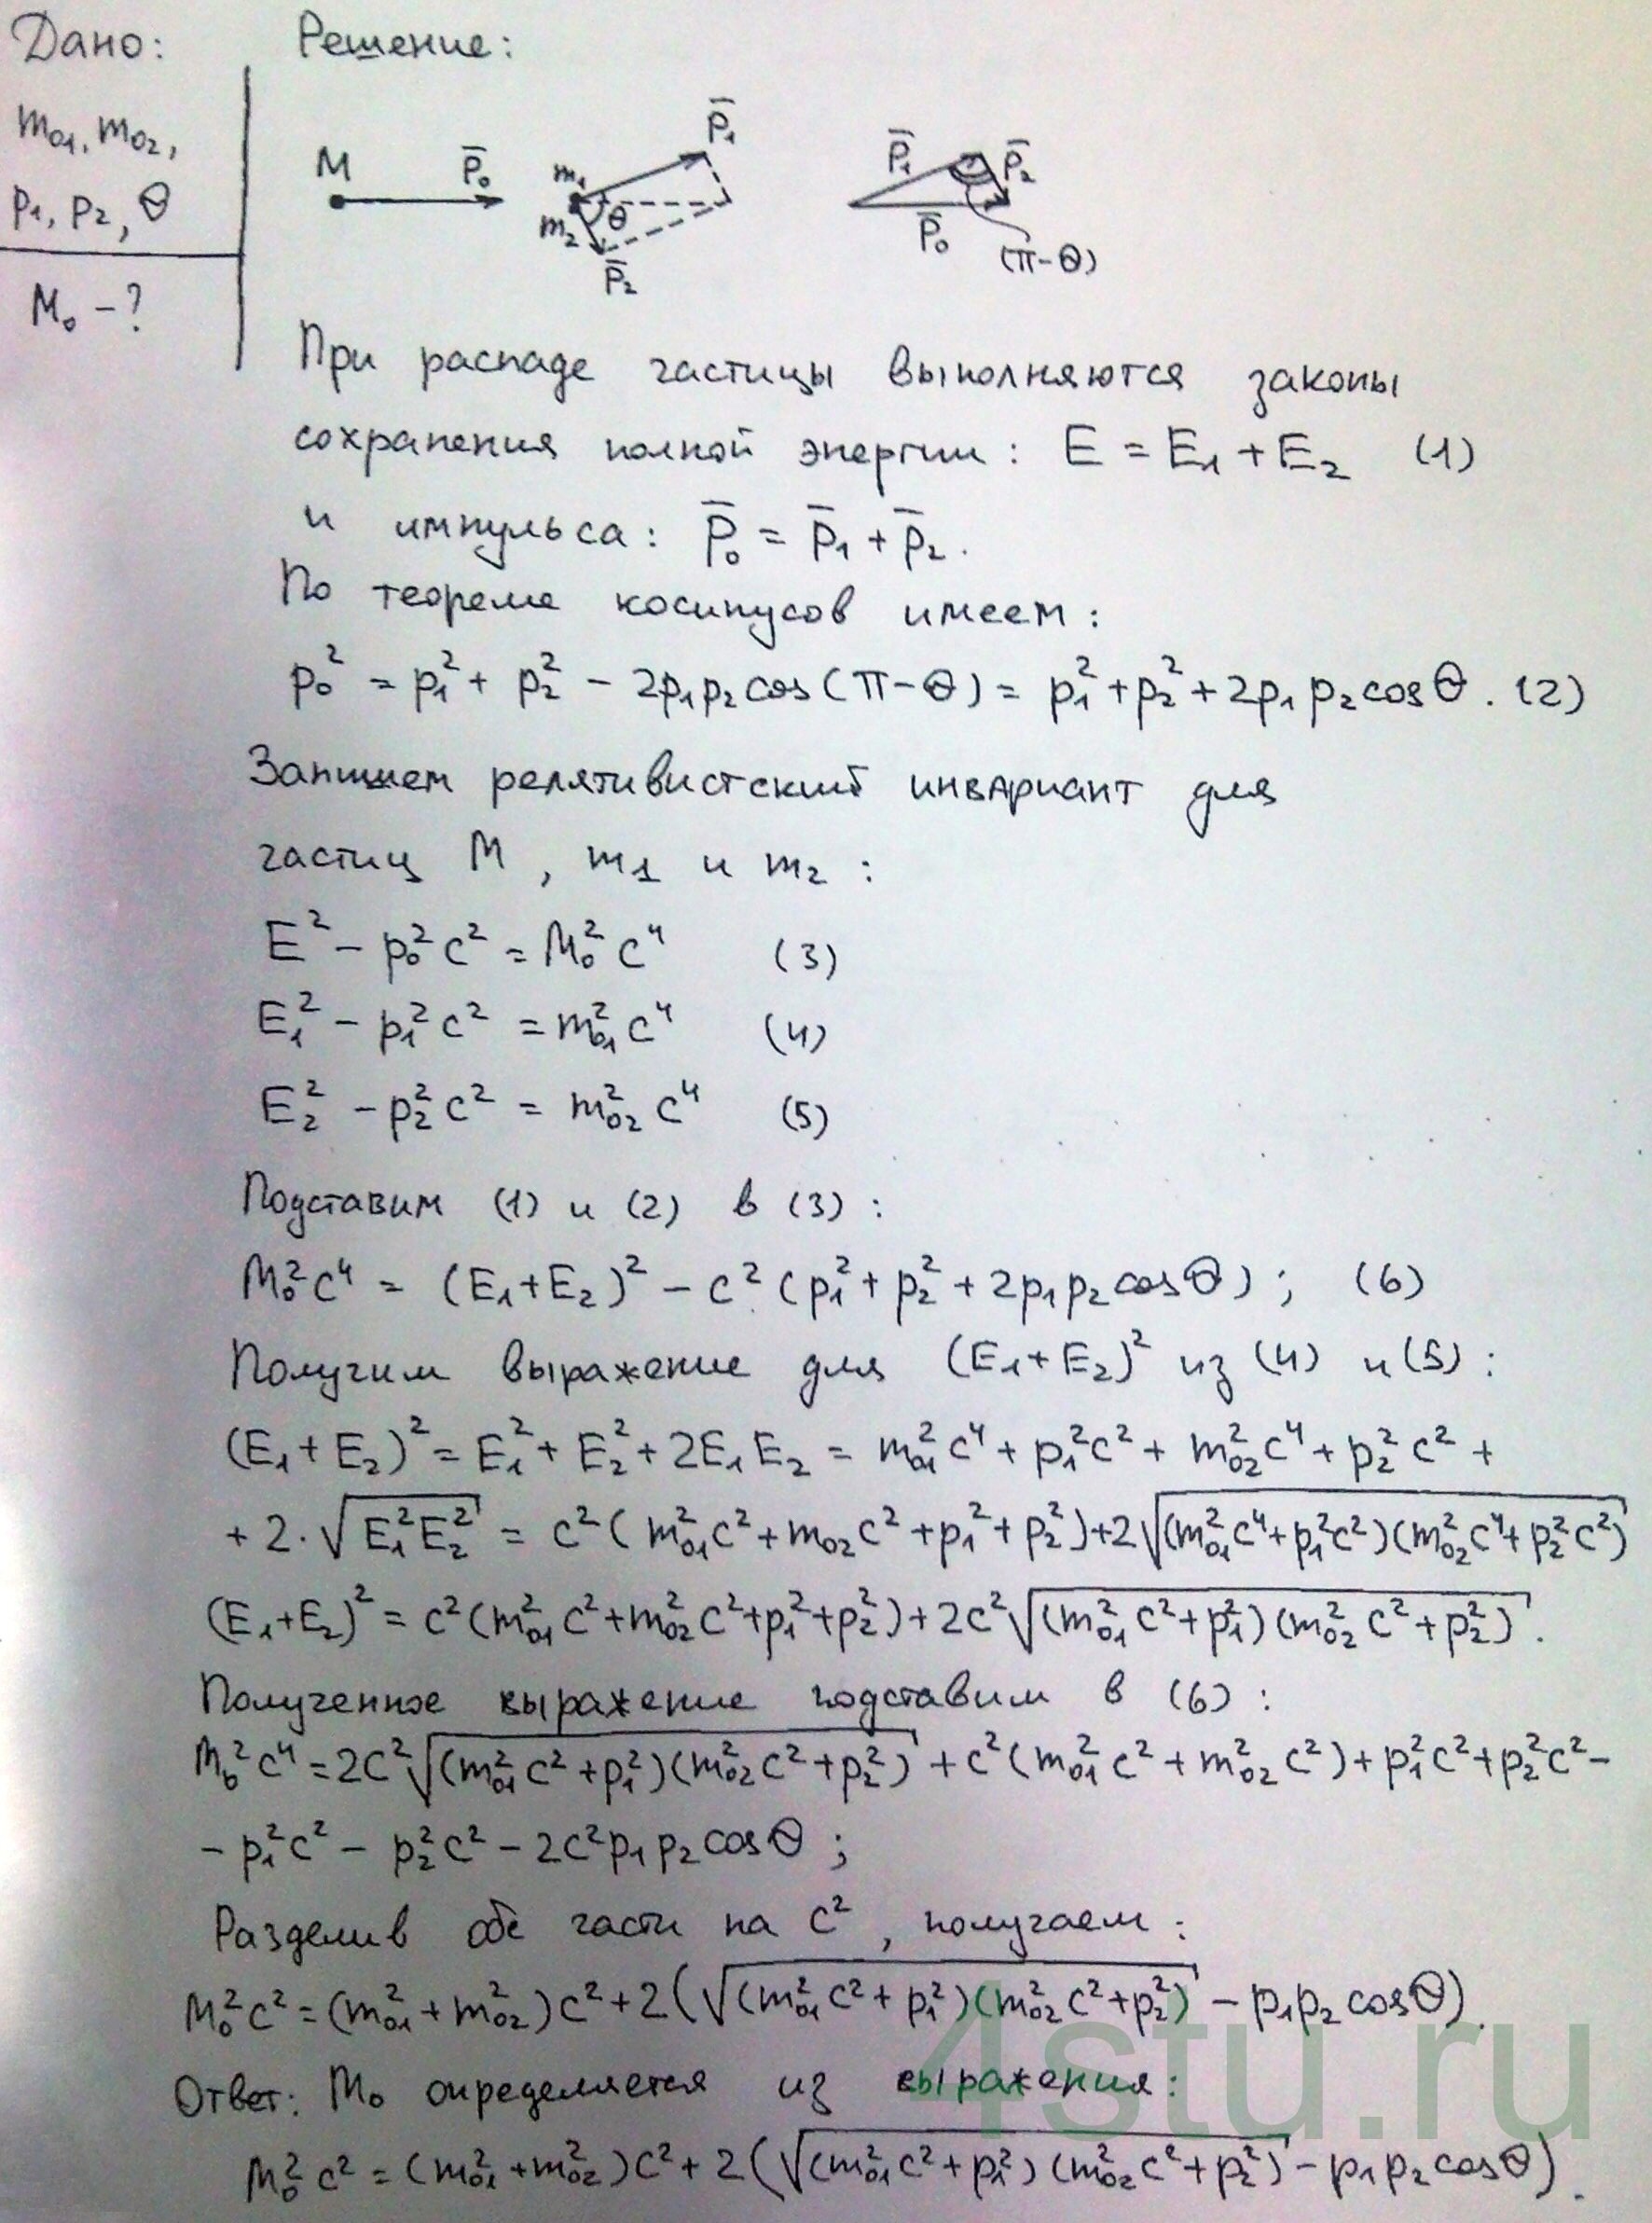 Дано:
Решение:
m₀₁, m₀₂,
p₁, p₂, θ
M₀ - ?
M p̄₀ m₁ m₂ θ p̄₁ p̄₂
p̄₁ p̄₂ p̄₀ (π-θ)
При распаде частицы выполняются законы
сохранения полной энергии: E = E₁ + E₂ (1)
и импульса: p̄₀ = p̄₁ + p̄₂.
По теореме косинусов имеем:
p₀² = p₁² + p₂² - 2p₁p₂cos(π-θ) = p₁² + p₂² + 2p₁p₂cosθ. (2)
Запишем релятивистский инвариант для
частиц M, m₁ и m₂:
E² - p₀²c² = M₀²c⁴ (3)
E₁² - p₁²c² = m₀₁²c⁴ (4)
E₂² - p₂²c² = m₀₂²c⁴ (5)
Подставим (1) и (2) в (3):
M₀²c⁴ = (E₁+E₂)² - c²(p₁² + p₂² + 2p₁p₂cosθ); (6)
Получим выражение для (E₁+E₂)² из (4) и (5):
(E₁+E₂)² = E₁² + E₂² + 2E₁E₂ = m₀₁²c⁴ + p₁²c² + m₀₂²c⁴ + p₂²c² +
+ 2·√(E₁²E₂²) = c²(m₀₁²c² + m₀₂c² + p₁² + p₂²) + 2√((m₀₁²c⁴+p₁²c²)(m₀₂²c⁴+p₂²c²))
(E₁+E₂)² = c²(m₀₁²c²+m₀₂²c²+p₁²+p₂²) + 2c²√((m₀₁²c²+p₁²)(m₀₂²c²+p₂²)).
Полученное выражение подставим в (6):
M₀²c⁴ = 2c²√((m₀₁²c²+p₁²)(m₀₂²c²+p₂²)) + c²(m₀₁²c² + m₀₂²c²) + p₁²c² + p₂²c² -
- p₁²c² - p₂²c² - 2c²p₁p₂cosθ;
Разделив обе части на c², получаем:
M₀²c² = (m₀₁² + m₀₂²)c² + 2(√((m₀₁²c²+p₁²)(m₀₂²c²+p₂²)) - p₁p₂cosθ).
Ответ: M₀ определяется из выражения:
M₀²c² = (m₀₁² + m₀₂²)c² + 2(√((m₀₁²c²+p₁²)(m₀₂²c²+p₂²)) - p₁p₂cosθ).
4stu.ru